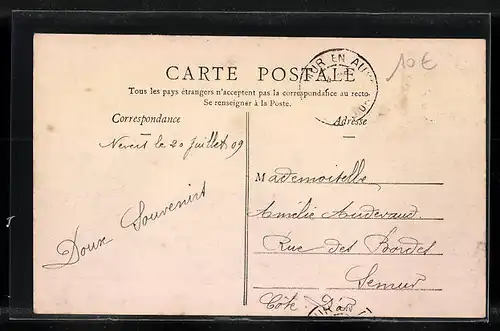 10€
MUR EN AU
CARTE POSTALE
Tous les pays étrangers n'acceptent pas la correspondance au recto.
Se renseigner à la Poste.
Correspondance
le 20 juillet 09
Doux Souvenirs
Adresse
Mademoiselle
Amélie
Rue des Bordes
Semur
Côte D'or